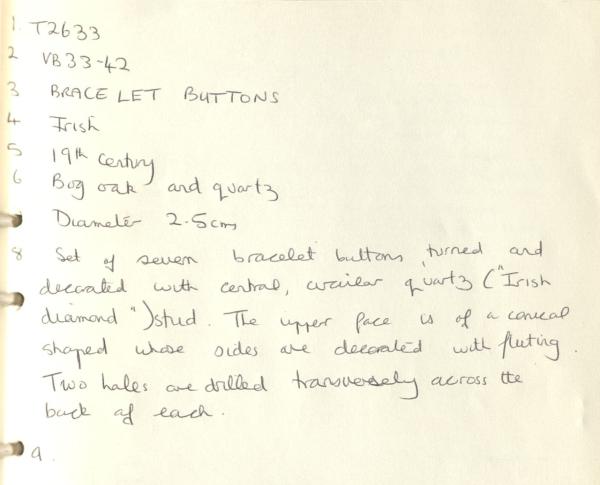 1. T2633
2 VB33-42
3 BRACELET BUTTONS
4 Irish
5 19th century
6 Bog oak and quartz
Diameter 2.5cms
8 Set of seven bracelet buttons, turned and
decorated with central, circular quartz ("Irish
diamond") stud. The upper face is of a conical
shaped whose sides are decorated with fluting.
Two holes are drilled transversely across the
back of each.
9.